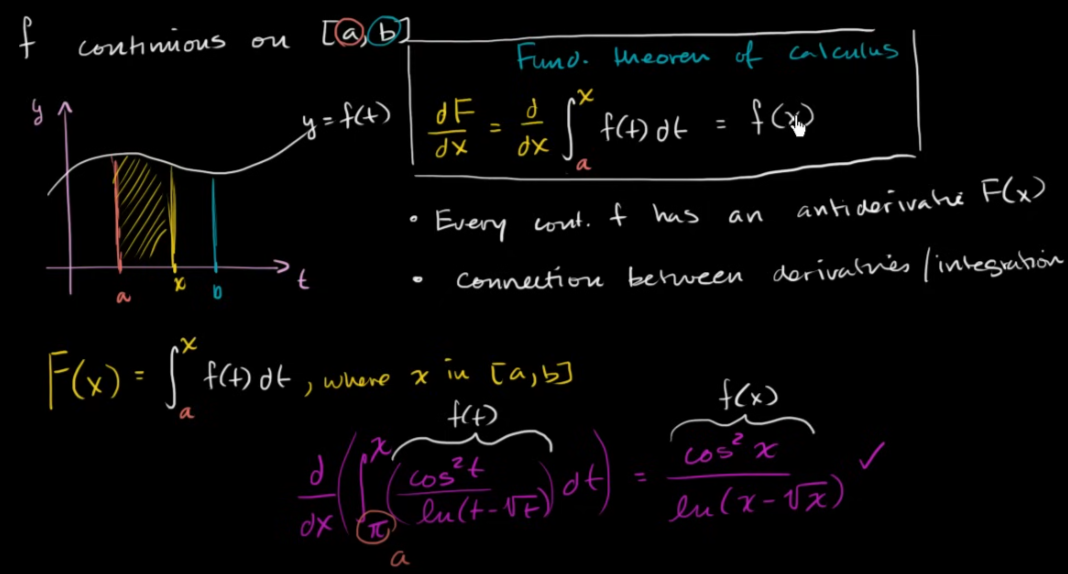 f continious on [a, b]
Fund. theorem of calculus
dF/dx = d/dx ∫_a^x f(t) dt = f(x)
y
y = f(t)
a x b t
• Every cont. f has an antiderivative F(x)
• Connection between derivatives/integration
F(x) = ∫_a^x f(t) dt, where x in [a, b]
f(t) f(x)
d/dx (∫_π^x (cos² t / ln(t-√t)) dt) = cos² x / ln(x-√x) ✓
a